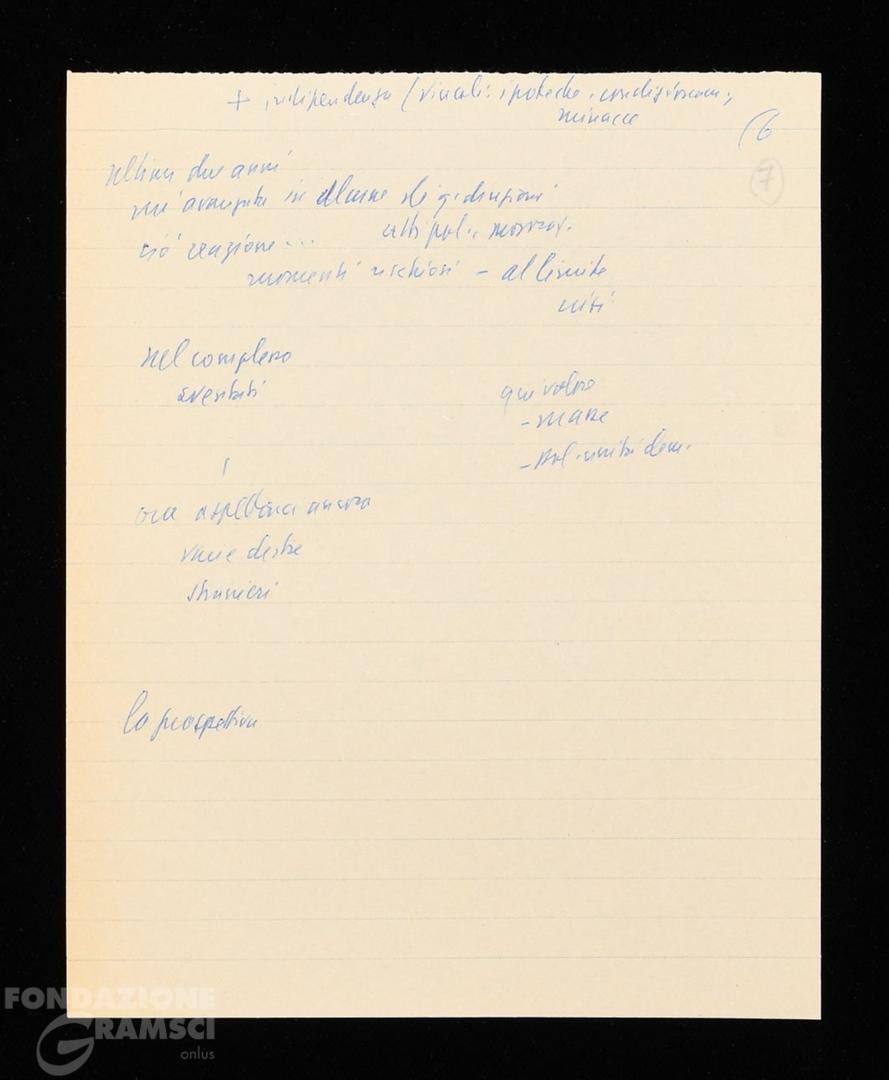 + indipendenza (vincoli: ipoteche, condizionam.,
minacce
(6
7
ultimi due anni
più avanzata in
ciò reazione... pol.
momenti rischiosi - al limite
nel complesso
sventati
qui valore
- masse
- pol. unità dem.
ora ancora
varie destre
stranieri
la prospettiva
FONDAZIONE
GRAMSCI
onlus